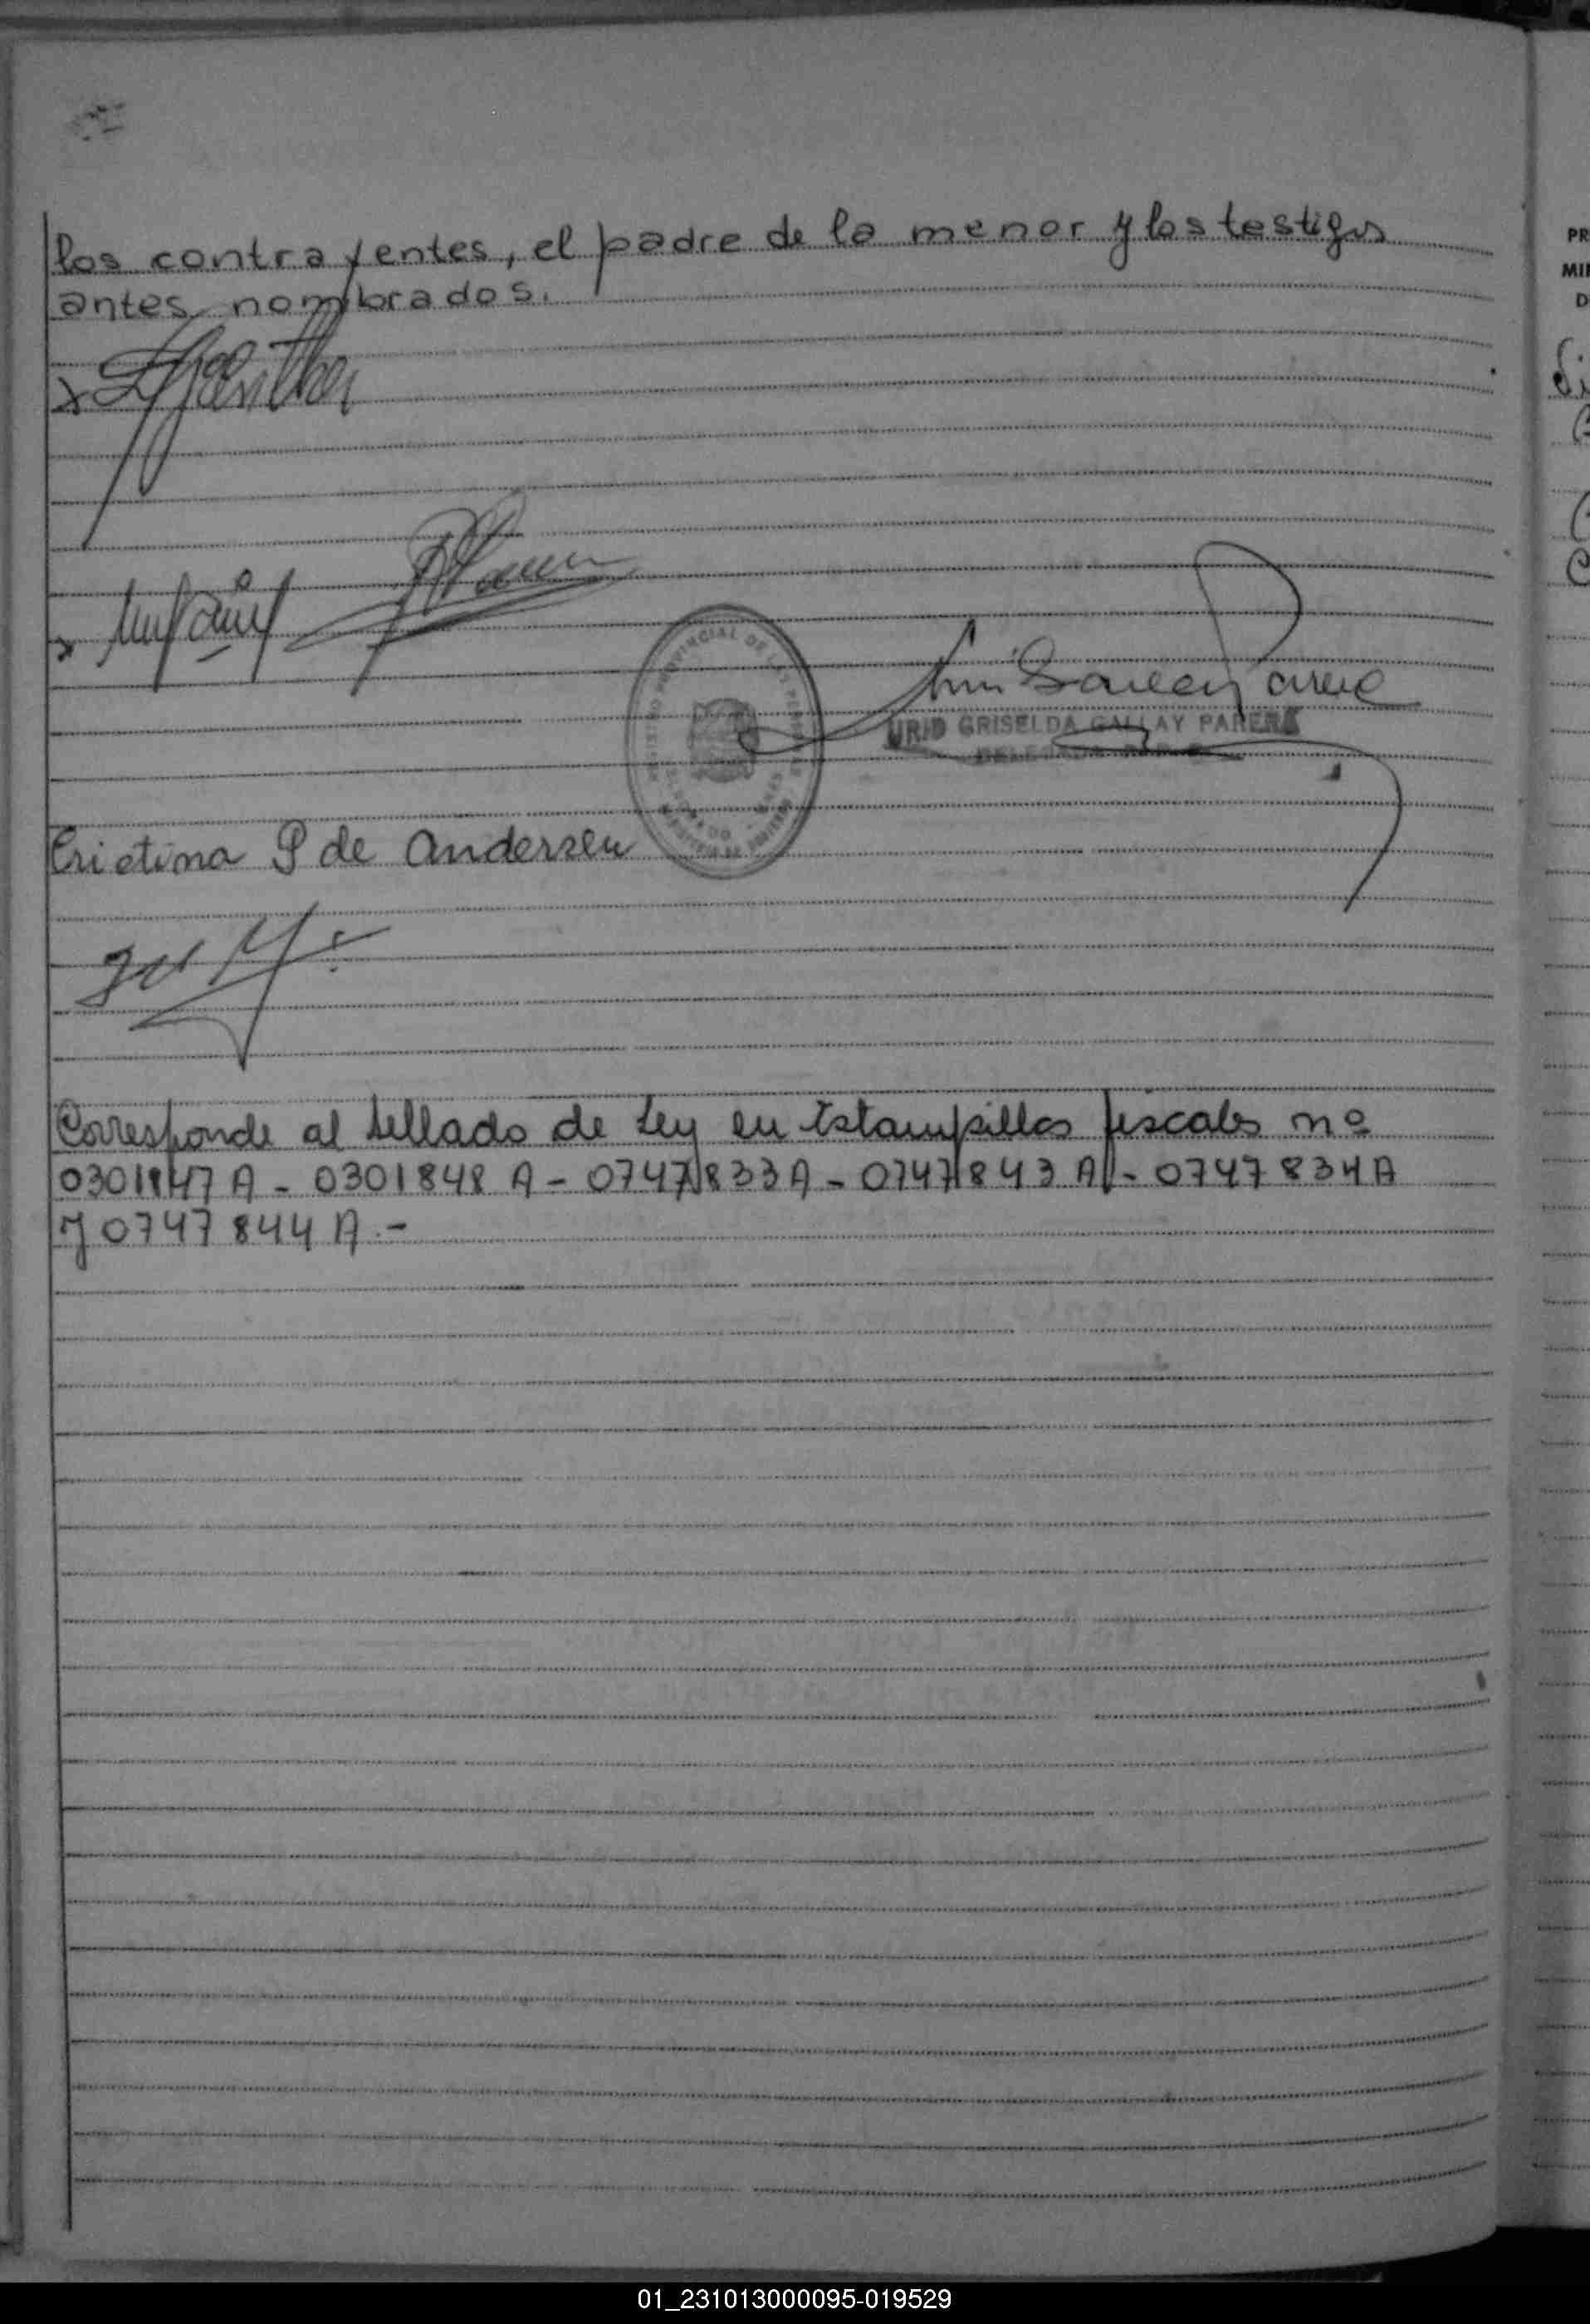 los contrayentes, el padre de la menor y los testigos
antes nombrados.
URID GRISELDA GALLAY PARERA
DELEGADA
PROVINCIAL DE LAS PERSONAS
Cristina P de Andersen
Corresponde al sellado de Ley en Estampillas fiscales nº
0301847 A - 0301848 A - 0747833 A - 0747843 A - 0747834 A
y 0747844 A.-
PR
MI
D
01_231013000095-019529